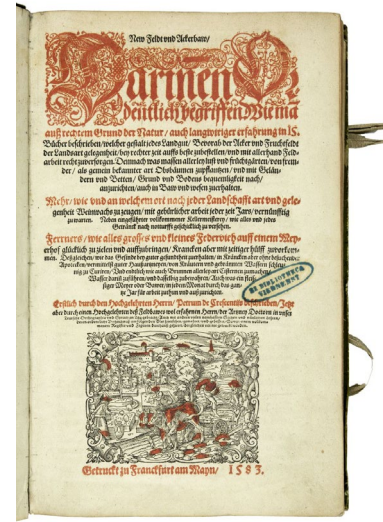 New Feldt vnd Ackerbaw/
Darinen Or
dentlich begriffen Wie mā
auß rechtem Grund der Natur/ auch langwiriger erfahrung in 15.
Bücher beschrieben/ welcher gestalt jedes Landgut/ Bevorab der Acker vnd Fruchtfeldt
der Landsart gelegenheit/ bey rechter zeit auffs beste zubestellen/ vnd mit allerhand Feld-
arbeit recht zuversorgen. Demnach was massen allerley lust vnd fruchtgärten/ von frem-
der/ als gemein bekannter art Obsbäumen zupflantzen/ vnd mit Gelän-
dern vnd Betten/ Grund vnd Bodens bequemligkeit nach/
anzurichten/ auch an Baw vnd wesen zuerhalten.
Mehr/ wie vnd an welchem ort nach jeder Landschafft art vnd gele-
genheit Weinwachs zu zeugen/ mit gebürlicher arbeit jeder zeit Jars/ vernünfftig
zu warten. Neben angeführter vollkommener Kellermeisterey/ wie alles vnd jedes
Getränck nach notturfft geschicklich zu versehen.
Ferrners/ wie alles grosses vnd kleines Federvieh auff einem Mey-
erhof glücklich zu zielen vnd auffzubringen/ Krancken aber mit zeitiger hülff zuvorkom-
men. Deßgleichen/ wie das Gesinde bey guter gesundtheit zuerhalten/
Wasser darin zuführen/ vnd dasselbig zubewahren/
Erstlich durch den Hochgelehrten Herrn/ Petrum de Crescentiis beschrieben/ Jetzt
aber durch einen Hochgelehrten deß Feldbawes wol erfahrnen Herrn/ der Artzney Doctorn
BIBLIOTHECA
Getruckt zu Franckfurt am Mayn/ 1583.